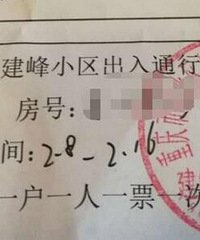 建峰小区出入通行
房号：
间：2-8-2.16
一户一人一票一次
重庆
建